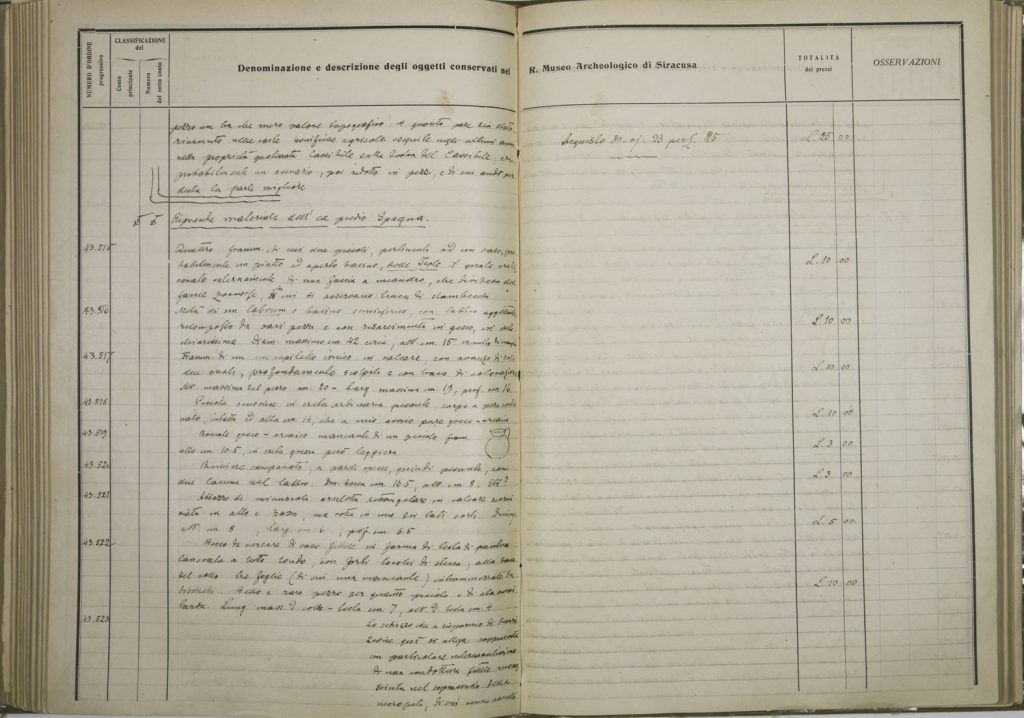 NUMERO D'ORDINE
progressivo
CLASSIFICAZIONE
del
Conto
principale
Numero
del sotto conto
Denominazione e descrizione degli oggetti conservati nel R. Museo Archeologico di Siracusa
TOTALITÀ
dei prezzi
OSSERVAZIONI
pezzo non ha che mero valore topografico e quanto pare sia stato
rinvenuto nelle varie bonifiche agricole eseguite negli ultimi anni
nella proprietà Cassibile sulla del Cassibile, era
probabilmente un, poi ridotto in pezzi, e di cui andò per
duta la parte migliore
Acquisto 30. 23 per L. 25
L. 25 00
Riprende materiale dell' ex predio Spagna.
43.515
Quattro framm. di cui due piccoli, pertinenti ad un vaso, pro
babilmente un piatto od aperto bacino, delle Isole il quale era
ornato esternamente di una fascia a meandro, che divideva due
fascie zoomorfe, in cui si osservano traccie di stambecchi.
L. 10 00
43.516
Metà di un labrum o bacino emisferico, con labbro aggettante,
ricomposto da vari pezzi e con risarcimenti in gesso, in creta
chiarissima. Diam. massimo cm. 42 circa, alt. cm. 15
L. 10 00
43.517
Framm. di un capitello ionico in calcare, con avanzo di soli
due ovoli, profondamente scolpiti e con tracce di colorazione
Alt. massima del pezzo cm. 20 - Larg. massima cm. 19, prof. cm. 16
L. 10 00
43.518
Piccola in creta ordinaria pesante, corpo
nato, intatta ed alta cm. 14, che a mio avviso pare greco-arcaica
L. 10 00
43.519
Boccale greco-arcaico mancante di un piccolo fram.
alto cm. 10.5, in creta grezza però leggiera
L. 3 00
43.520
Bicchiere campanato, a pareti spesse, quindi pesante, con
due lacune nel labbro. Dm. bocca cm. 10.5, alt. cm. 8. Età?
L. 3 00
43.521
Abbozzo di minuscola aruletta rettangolare in calcare
in alto e basso, ma rotta in uno dei lati corti. Dimens.
Alt. cm. 8, larg. cm. 6, prof. cm. 6.5
L. 5 00
43.522
Bocca da versare di vaso fittile in forma di testa di pantera
lavorata a tutto tondo, con forti tocchi di stecca, alla base
del collo tre foglie (di cui una mancante) intramezzate da
dischetti. Bello e raro pezzo per quanto piccolo e di età assai
tarda. Lung. mass. d. collo - testa cm. 7, alt. d. testa cm. 4
L. 10 00
43.523
Lo schizzo che a risparmio di descri
zione qui si allega rappresenta
un particolare interessantissimo
di una conduttura fittile rinve
nuta nel soprasuolo della
necropoli, di cui